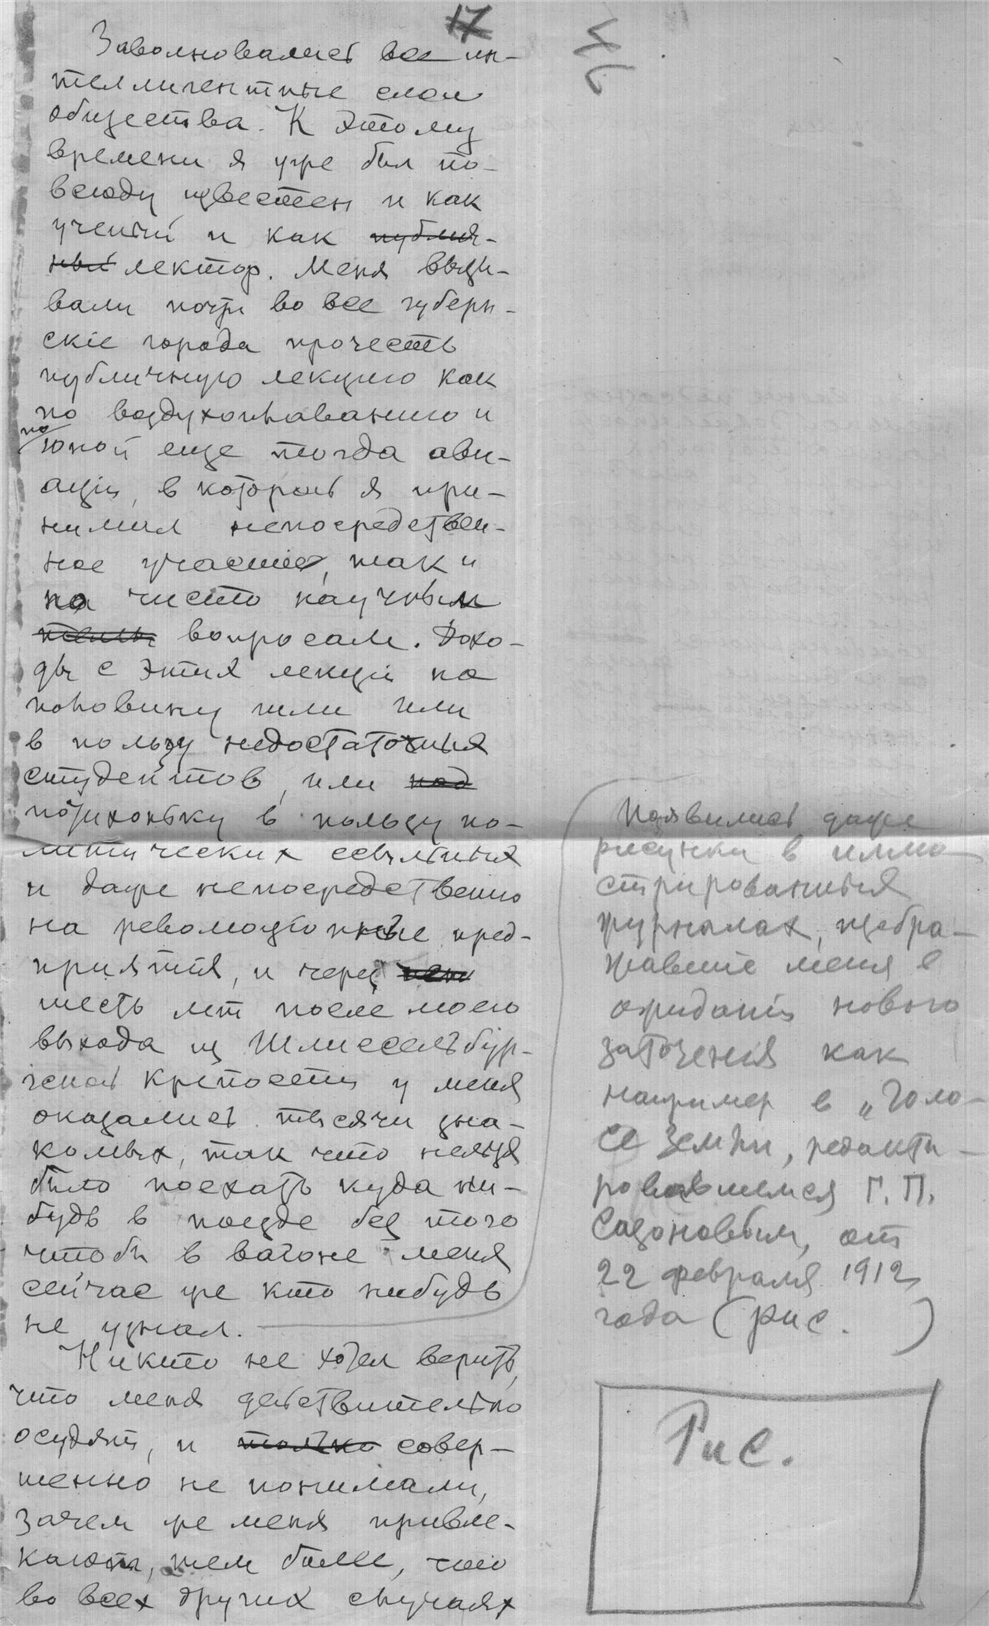 17
Заволновались все ин-
теллигентные слои
общества. К этому
времени я уже был по-
всюду известен и как
ученый и как публич-
ный лектор. Меня вызы-
вали почти во все губерн-
скіе города прочесть
публичную лекцию как
по воздухоплаванию и
по юной еще тогда ави-
аціи, в которой я при-
нимал непосредствен-
ное участие, так и
по чисто научным
вопросам. Дохо-
ды с этих лекций на
половину шли или
в пользу недостаточных
студентов, или под
потихоньку в пользу по-
литических ссыльных
и даже непосредственно
на революціонные пред-
приятия, и через
шесть лет после моего
выхода из Шлиссельбур-
гской крепости у меня
оказались тысячи зна-
комых, так что нельзя
было поехать куда ни-
будь в поезде без того
чтобы в вагоне меня
сейчас же кто нибудь
не узнал.
Никто не хотел верить,
что меня действительно
осудят, и только совер-
шенно не понимали,
зачем же меня привле-
кают, тем более, что
во всех других случаях
Появились даже
рисунки в иллю-
стрированных
журналах, изобра-
жавшие меня в
ожиданіи нового
заточения как
например в „Голо-
се Земли, редакти-
ровавшемся Г. П.
Сазоновым, от
22 февраля 1912
года (рис. )
Рис.